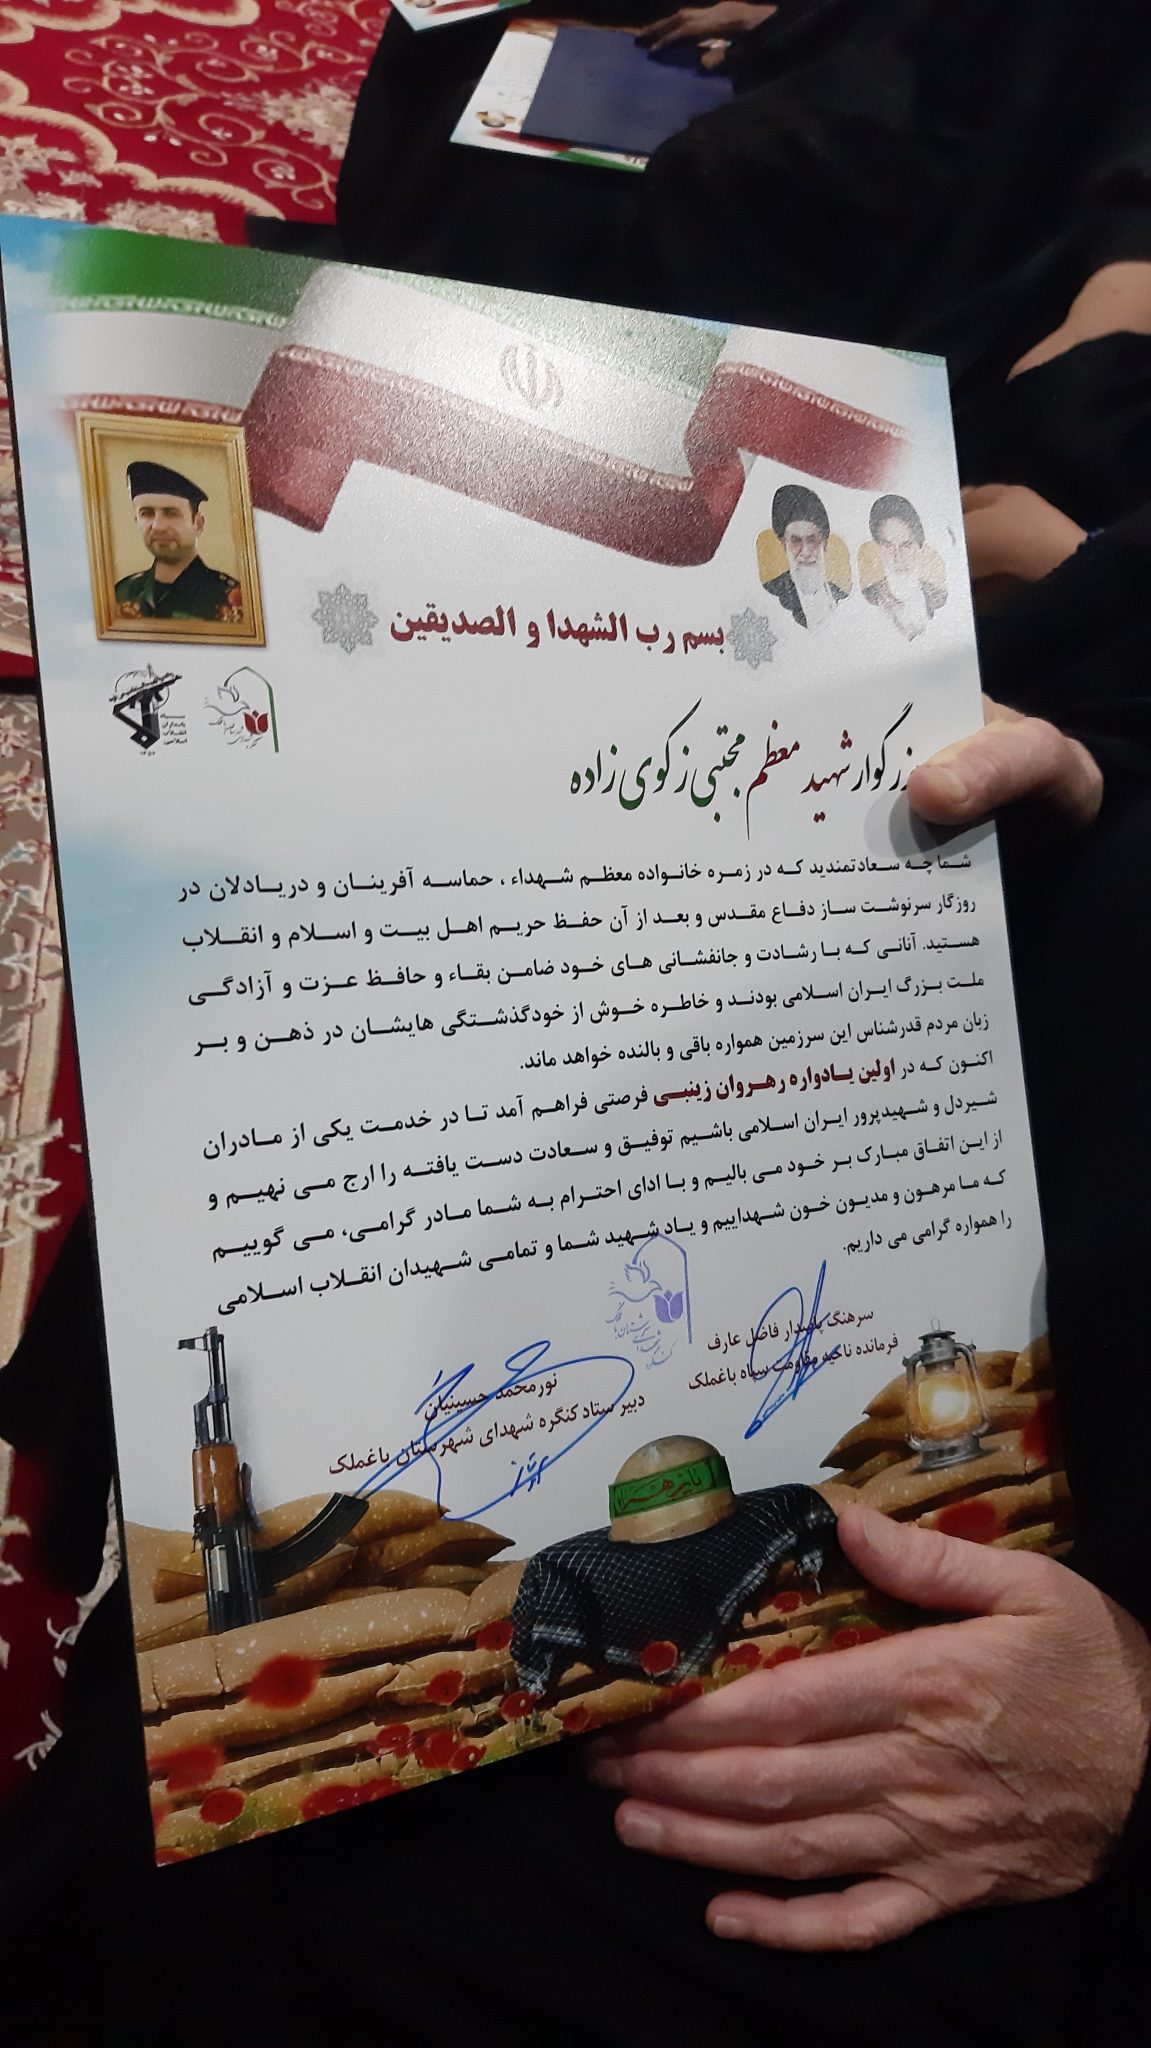 بسم رب الشهدا و الصدیقین
سپاه
پاسداران
انقلاب
اسلامی
بزرگوار شهید معظم مجتبی زکوی زاده
شما چه سعادتمندید که در زمره خانواده معظم شهداء ، حماسه آفرینان و دریادلان در
روزگار سرنوشت ساز دفاع مقدس و بعد از آن حفظ حریم اهل بیت و اسلام و انقلاب
هستید. آنانی که با رشادت و جانفشانی های خود ضامن بقاء و حافظ عزت و آزادگی
ملت بزرگ ایران اسلامی بودند و خاطره خوش از خودگذشتگی هایشان در ذهن و بر
زبان مردم قدرشناس این سرزمین همواره باقی و بالنده خواهد ماند.
اکنون که در اولین یادواره رهروان زینبی فرصتی فراهم آمد تا در خدمت یکی از مادران
شیردل و شهیدپرور ایران اسلامی باشیم توفیق و سعادت دست یافته را ارج می نهیم و
از این اتفاق مبارک بر خود می بالیم و با ادای احترام به شما مادر گرامی، می گوییم
که ما مرهون و مدیون خون شهداییم و یاد شهید شما و تمامی شهیدان انقلاب اسلامی
را همواره گرامی می داریم.
سرهنگ پاسدار فاضل عارف
فرمانده ناحیه مقاومت سپاه باغملک
نورمحمد حسینیان
دبیر ستاد کنگره شهدای شهرستان باغملک